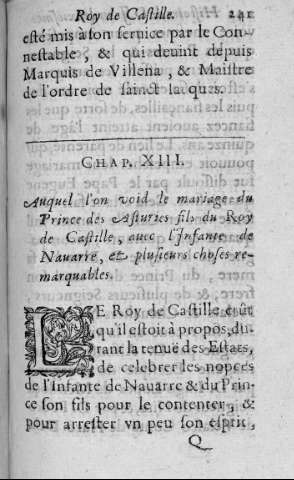 Roy de Castille. 241
esté mis à son seruice par le Con-
nestable, & qui deuint depuis
Marquis de Villena, & Maistre
de l'ordre de sainct Iacques.
CHAP. XIII.
Auquel l'on void le mariage du
Prince des Asturies fils du Roy
de Castille, auec l'Infante de
Nauarre, et plusieurs choses re-
marquables.
LE Roy de Castille crût
qu'il estoit à propos, du-
rant la tenuë des Estats,
de celebrer les nopces
de l'Infante de Nauarre & du Prin-
ce son fils pour le contenter, &
pour arrester vn peu son esprit,
Q